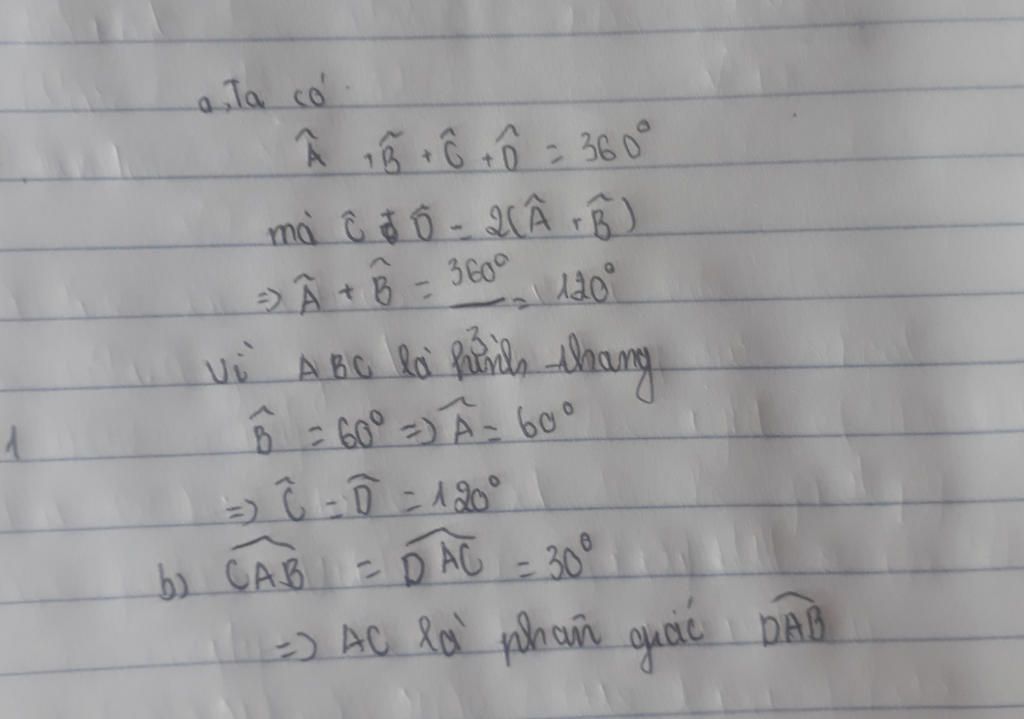 a, Ta có
Â + B̂ + Ĉ + D̂ = 360°
mà Ĉ + D̂ = 2(Â + B̂)
=> Â + B̂ = 360°/3 = 120°
Vì ABC là hình thang
1 B̂ = 60° => Â = 60°
=> Ĉ = D̂ = 120°
b) \widehat{CAB} = \widehat{DAC} = 30°
=> AC là phân giác \widehat{DAB}